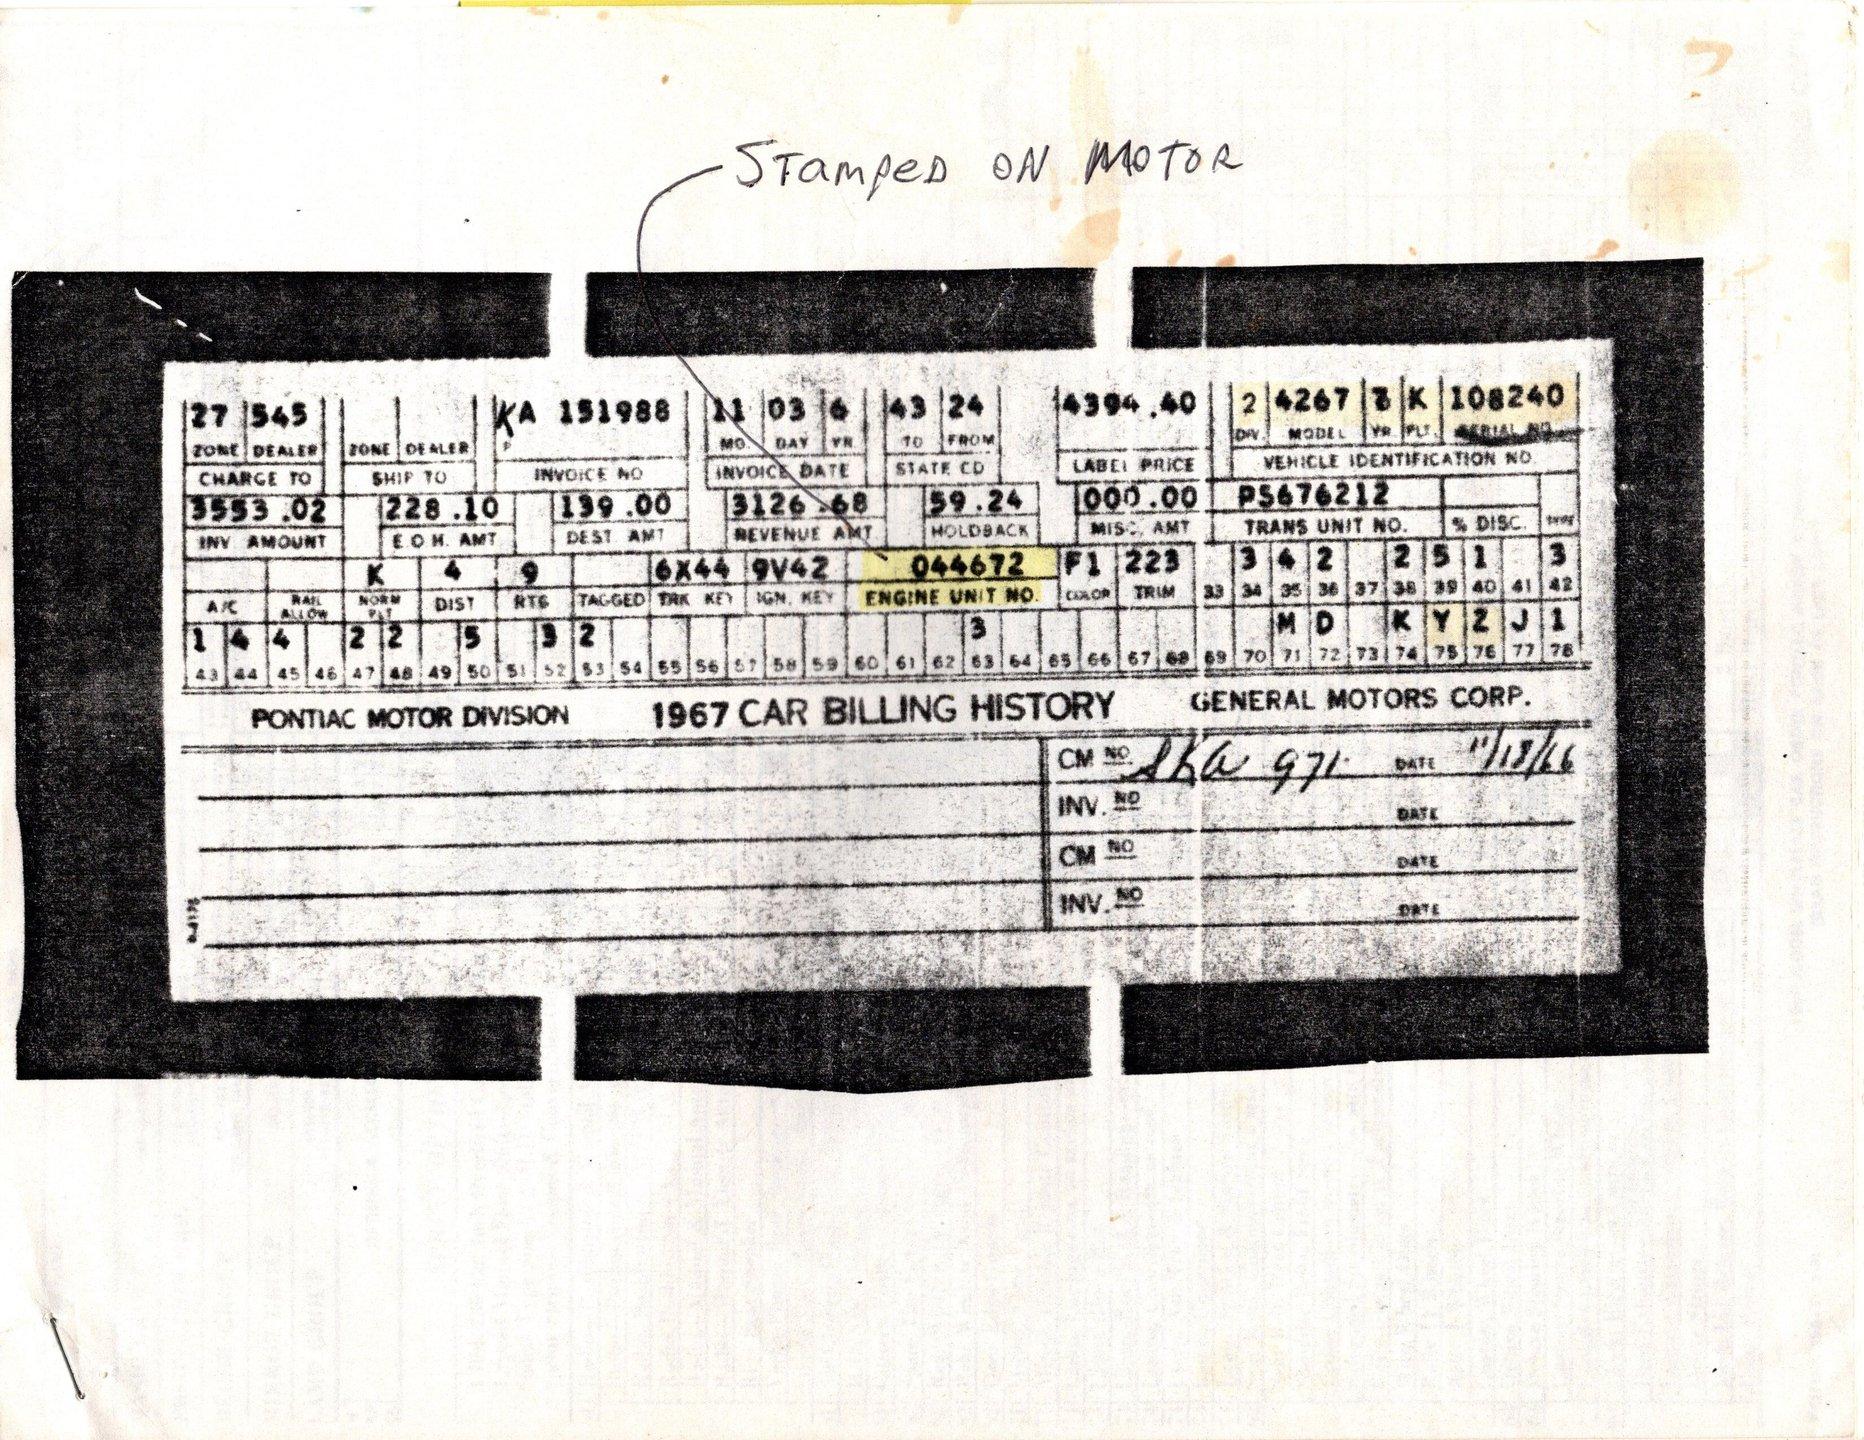 STAMPED ON MOTOR
27 545 KA 151988 11 03 6 43 24 4394.40 2 4267 7 K 108240
ZONE DEALER ZONE DEALER P MO. DAY YR TO FROM DIV. MODEL YR PLT. SERIAL NO.
CHARGE TO SHIP TO INVOICE NO INVOICE DATE STATE CD LABEL PRICE VEHICLE IDENTIFICATION NO.
3553.02 228.10 139.00 3126.68 59.24 000.00 P5676212
INV AMOUNT E O H. AMT DEST AMT REVENUE AMT HOLDBACK MISC. AMT TRANS UNIT NO. % DISC.
K 4 9 6X44 9V42 044672 F1 223 3 4 2 2 5 1 3
A/C RAIL ALLOW NORM PLT DIST RTG TAGGED TRK KEY IGN. KEY ENGINE UNIT NO. COLOR TRIM 33 34 35 36 37 38 39 40 41 42
1 4 4 2 2 5 3 2 3 M D K Y Z J 1
43 44 45 46 47 48 49 50 51 52 53 54 55 56 57 58 59 60 61 62 63 64 65 66 67 68 69 70 71 72 73 74 75 76 77 78
PONTIAC MOTOR DIVISION 1967 CAR BILLING HISTORY GENERAL MOTORS CORP.
CM NO SKA 971 DATE 11/18/66
INV. NO DATE
CM NO DATE
INV. NO DATE